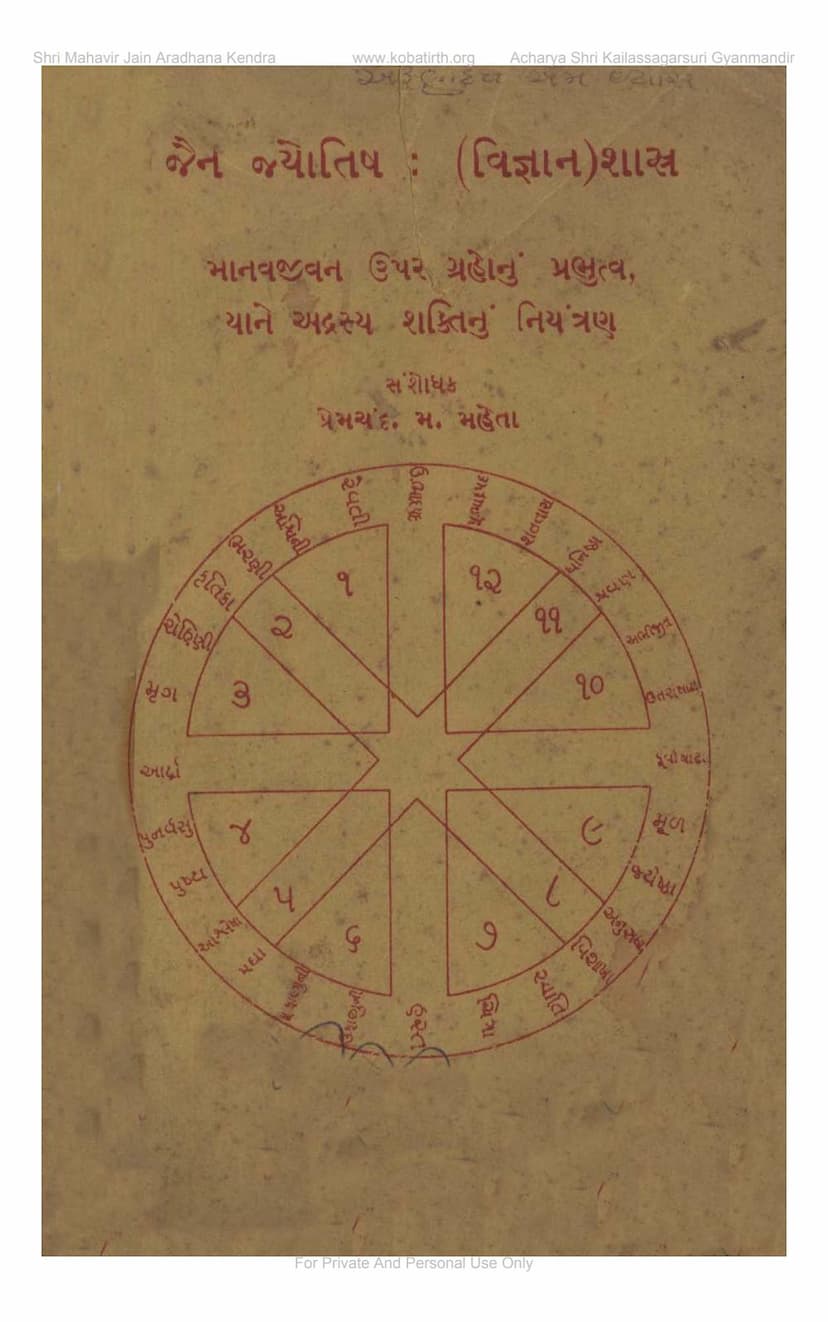 Shri Mahavir Jain Aradhana Kendra www.kobatirth.org Acharya Shri Kailassagarsuri Gyanmandir
જૈન જ્યૌતિષ : (વિજ્ઞાન)શાસ્ત્ર
માનવજીવન ઉપર ગ્રહોનું પ્રભુત્વ,
યાને અદ્રસ્ય શક્તિનું નિયંત્રણ
સંશોધક
પ્રેમચંદ. મ. મહેતા
રેવતી
અશ્વિની
ભરણી
કૃતિકા
રોહિણી
મૃગ
આર્દ્રા
પુનર્વસુ
પુષ્ય
મઘા
હસ્ત
ચિત્રા
સ્વાતિ
વિશાખા
અનુરાધા
જ્યેષ્ઠા
મૂળ
અભીજીત
શ્રવણ
ધનિષ્ઠા
૧
૨
૩
૪
૫
૬
૭
૮
૯
૧૦
૧૧
૧૨
For Private And Personal Use Only